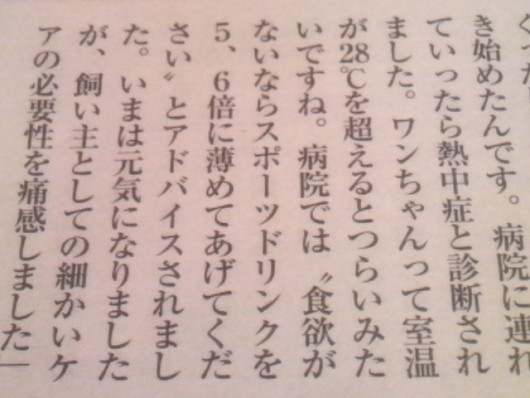 き始めたんです。病院に連れ
ていったら熱中症と診断され
ました。ワンちゃんって室温
が28℃を超えるとつらいみた
いですね。病院では〝食欲が
ないならスポーツドリンクを
5、6倍に薄めてあげてくだ
さい〟とアドバイスされまし
た。いまは元気になりました
が、飼い主としての細かいケ
アの必要性を痛感しました─